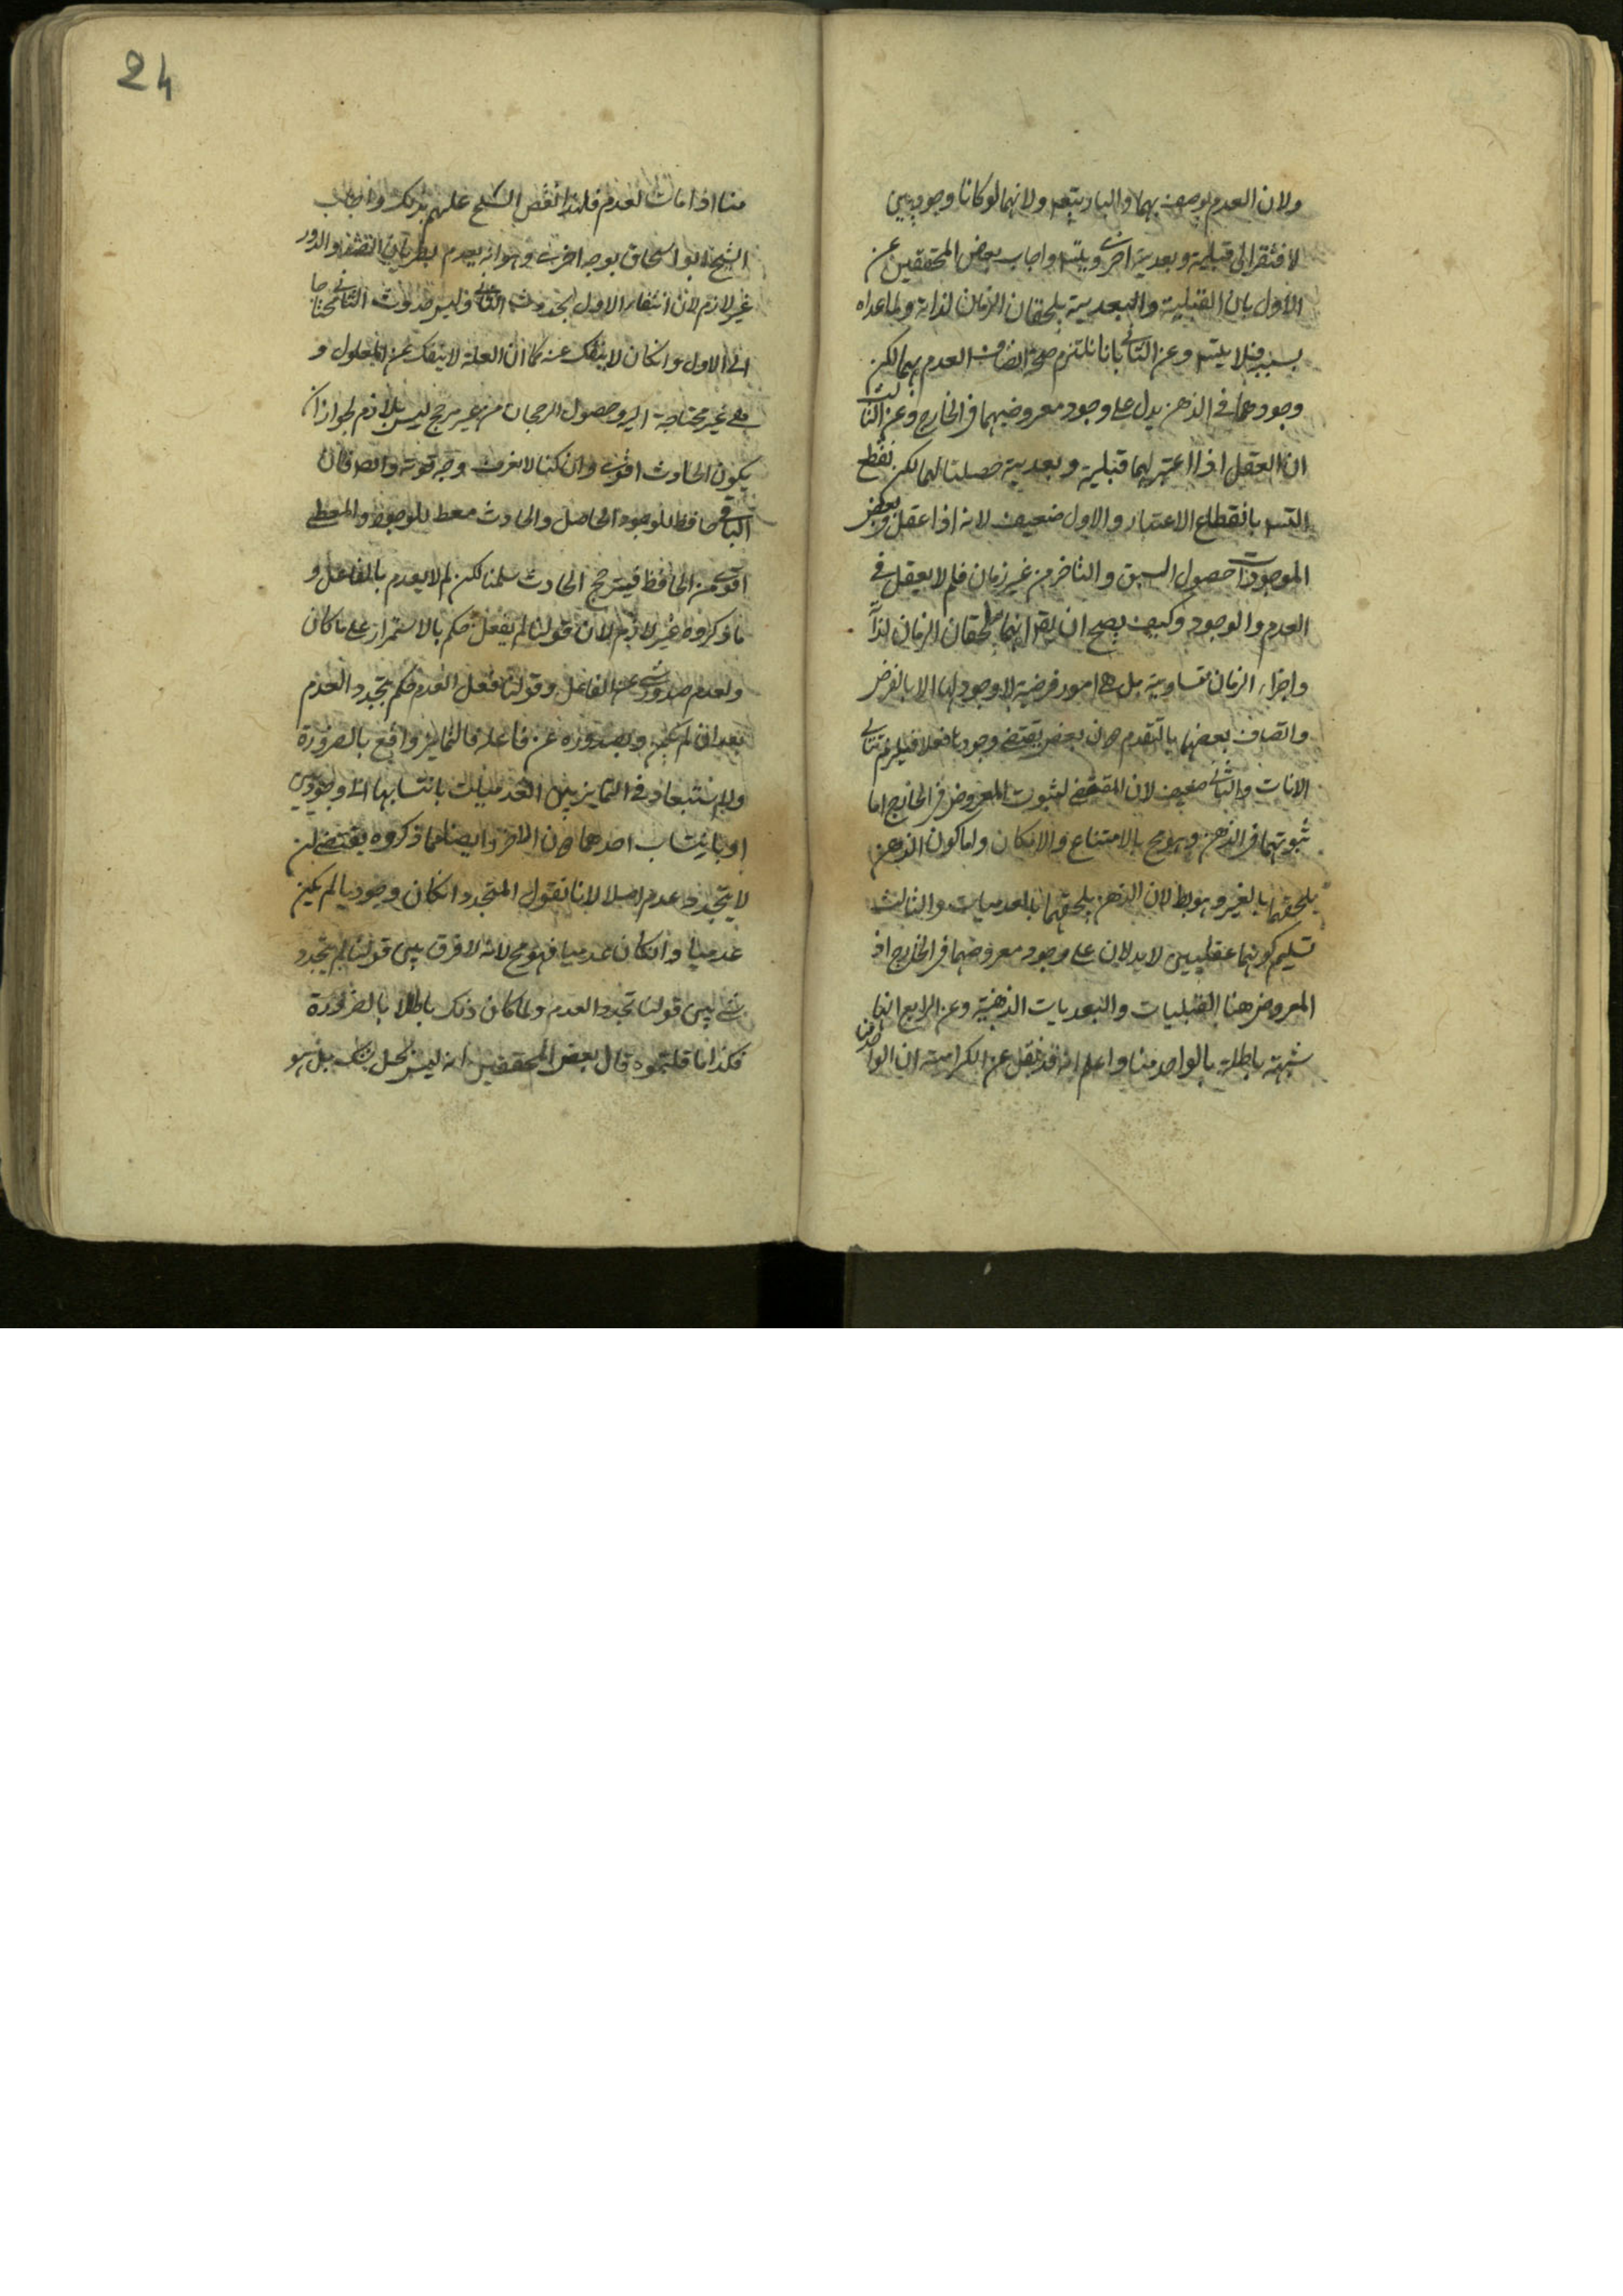 ولان العدم يوصف بهما والباريتعه ولانهما لوكانا وجوديين
لافتقر الى قبلية وبعدية اخرى ويتسه واجاب بعض المحققين عن
الاول بان القبلية والبعدية يلحقان الزمان لذاته ولماعداه
بسببه فلا يتسه وعن الثانى بانا نلتزم صحة اتصاف العدم بهما لكن
وجودهما فى الذهن يدل على وجود معروضيهما فى الخارج وعن الثالث
ان العقل اذا اعتبر لهما قبلية وبعدية حصلتا لهما لكن ينقطع
التسه بانقطاع الاعتبار والاول ضعيف لانه اذا عقل فى بعض
الموجودات حصول السبق والتاخر من غير زمان فلم لا يعقل فى
العدم والوجود وكيف يصح ان يقه انهما يلحقان الزمان لذاته
واجزاء الزمان متساوية بل هى امور فرضية لا وجود لها الا بالفرض
واتصاف بعضها بالتقدم دون بعض يقتضى وجودها فعلا فيلزم تتالى
الانات والثانى ضعيف لان المقتضى لثبوت المعروض فى الخارج اما
ثبوتهما فى الذهن وهو مح بالامتناع والامكان واما كون الذهن
يلحقهما بالغير وهو بط لان الذهن يلحقهما بالعدميات والثالث
تسليم كونهما عقليين لا يدلان على وجود معروضهما فى الخارج اذ
المعروض هنا القبليات والبعديات الذهنية وعن الرابع انها
شبهة باطلة بالواحد منا واعلم انه قد نقل عن الكرامية ان الواحد
24
منا اذا مات لعدم فلهذا نقض الشيخ عليهم بذلك واجاب
الشيخ ابو اسحاق بوجه اخر وهو انه يعدم بطريان الضد والدور
غير لازم لان انتفاء الاول بحدوث الثانى وليس حدوث الثانى محتاجا
الى الاول وان كان لا ينفك عنه كما ان العلة لا ينفك عن المعلول و
هى غير محتاجة اليه وحصول الرجحان من غير مرجح ليس بلازم لجواز ان
يكون الحادث اقوى وان كنا لا نعرف وجه قوته وايضا فان
الباقى حافظ للوجود الحاصل والحادث معط للوجود والمعطى
اقوى من الحافظ فيترجح الحادث سلمنا لكن لم لا يعدم بالفاعل و
ما ذكروه غير لازم لان قولنا لم يفعل حكم بالاستمرار على ما كان
ولعدم صدور شى عن الفاعل وقولنا فعل العدم حكم بتجدد العدم
بعد ان لم يكن وبصدوره عن فاعله فالتمايز واقع بالضرورة
ولا استبعاد فى التمايز بين العدميات بانتسابها الى وجوديين
او بانتساب احدهما دون الاخر وايضا فما ذكروه يقتضى ان
لا يتجدد عدم اصلا لانا نقول المتجدد ان كان وجوديا لم يكن
عدميا وان كان عدميا فهو مح لانه لا فرق بين قولنا لم يتجدد
شى وبين قولنا تجدد العدم ولما كان ذلك باطلا بالضرورة
فكذا ما قلتموه قال بعض المحققين انه ليس بحل لشك بل هو